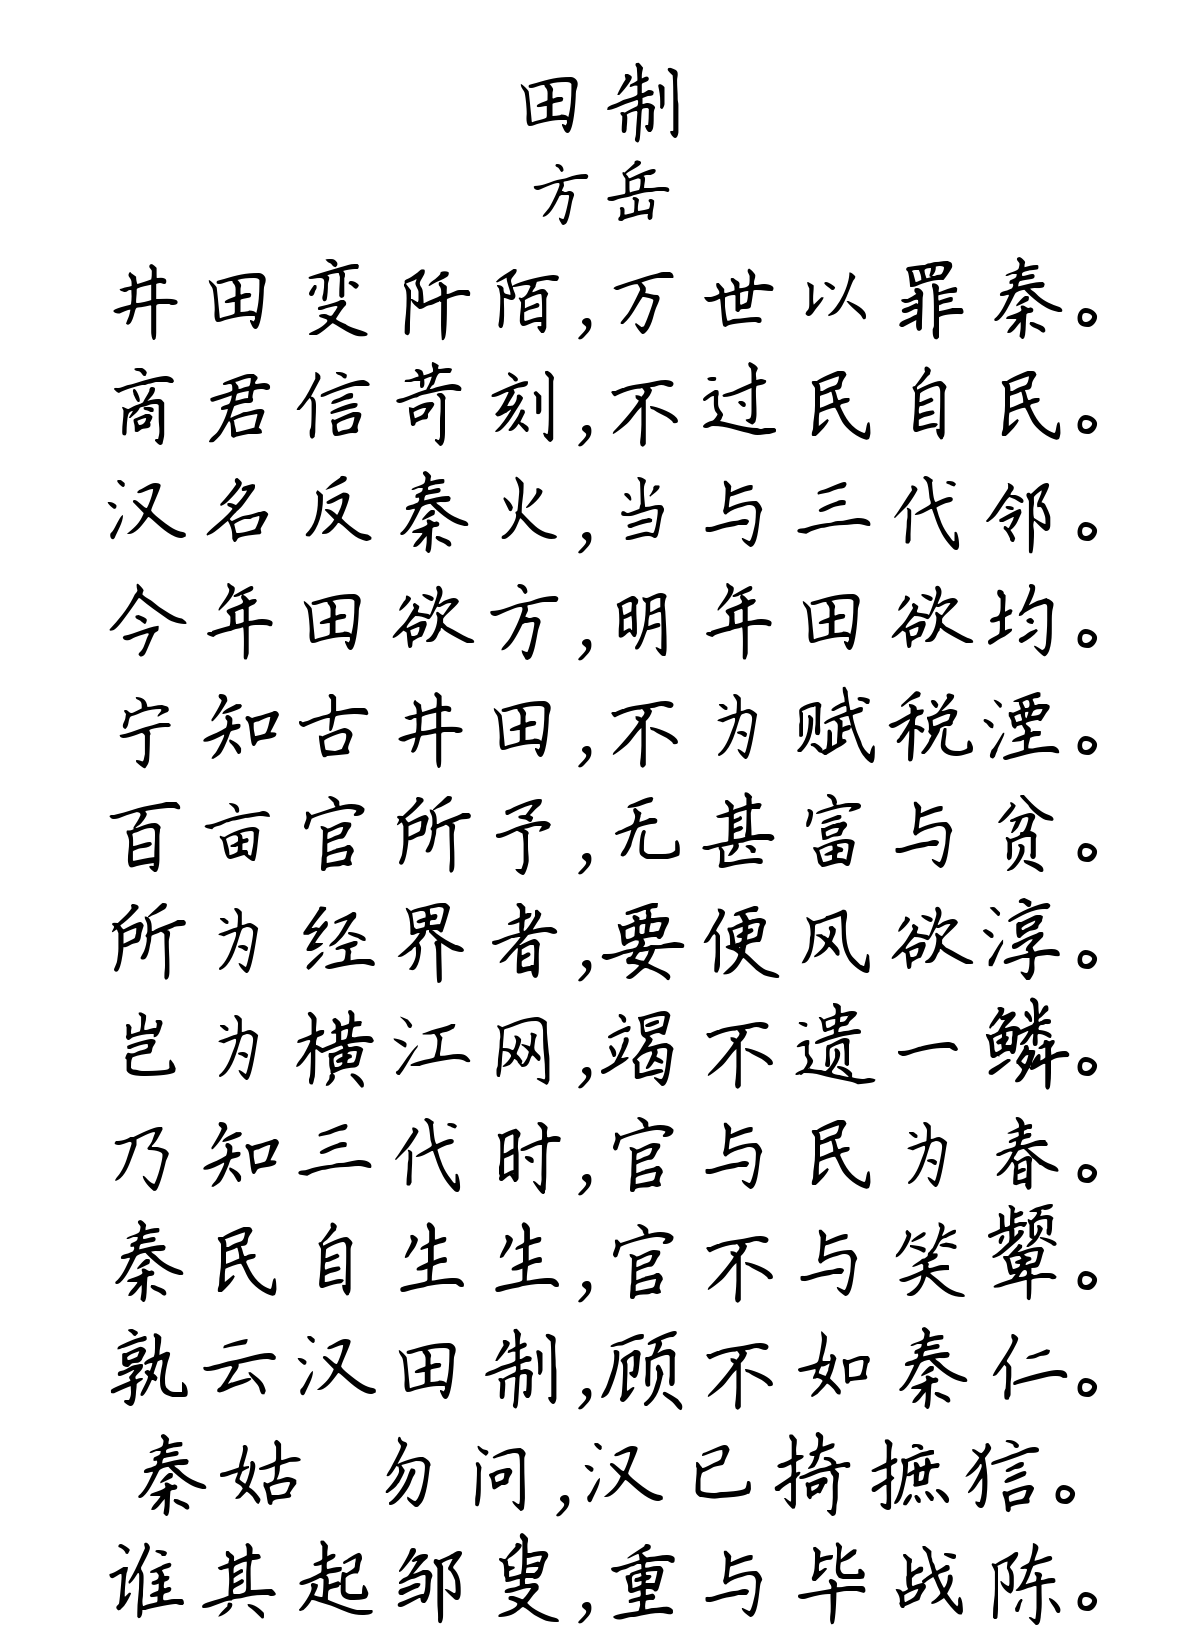 田制
方岳
井田变阡陌,万世以罪秦。
商君信苛刻,不过民自民。
汉名反秦火,当与三代邻。
今年田欲方,明年田欲均。
宁知古井田,不为赋税湮。
百亩官所予,无甚富与贫。
所为经界者,要便风欲淳。
岂为横江网,竭不遗一鳞。
乃知三代时,官与民为春。
秦民自生生,官不与笑颦。
孰云汉田制,顾不如秦仁。
秦姑 勿问,汉已掎摭狺。
谁其起邹叟,重与毕战陈。